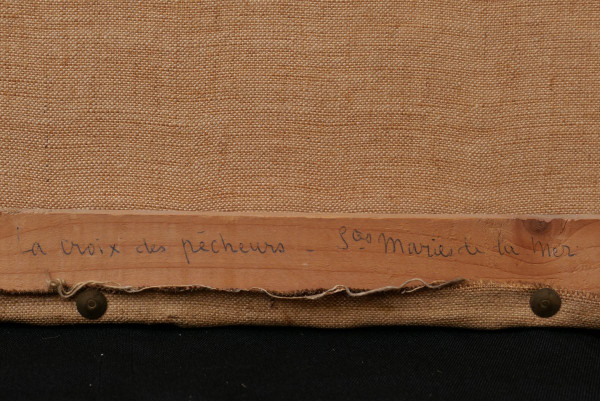 La croix des pêcheurs - Stes Maries de la Mer